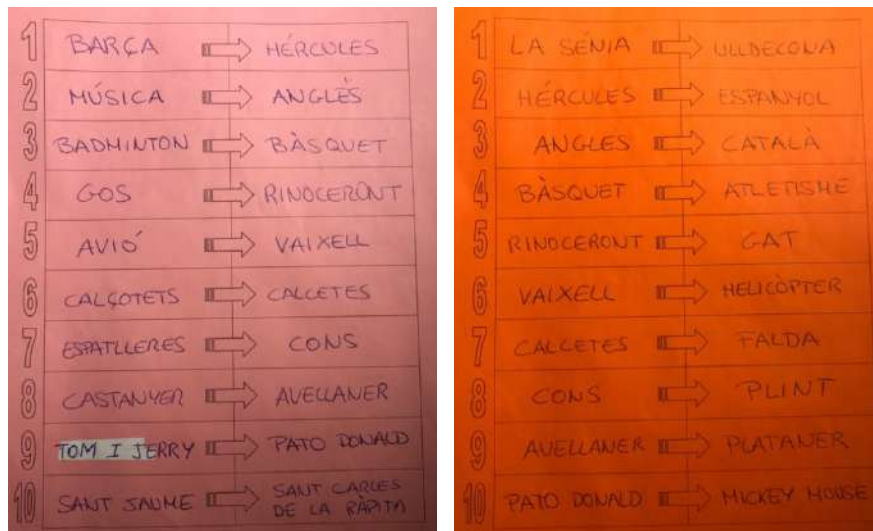 1 BARÇA HÉRCULES
2 MÚSICA ANGLÈS
3 BADMINTON BÀSQUET
4 GOS RINOCERONT
5 AVIÓ VAIXELL
6 CALÇOTETS CALCETES
7 ESPATLLERES CONS
8 CASTANYER AVELLANER
9 TOM I JERRY PATO DONALD
10 SANT JAUME SANT CARLES
DE LA RÀPITA
1 LA SÉNIA ULLDECONA
2 HÉRCULES ESPANYOL
3 ANGLES CATALÀ
4 BÀSQUET ATLETISME
5 RINOCERONT GAT
6 VAIXELL HELICÒPTER
7 CALCETES FALDA
8 CONS PLINT
9 AVELLANER PLATANER
10 PATO DONALD MICKEY MOUSE